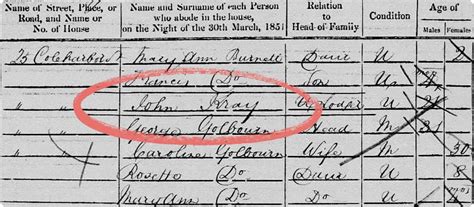 Name of Street, Place, or Road, and Name or No. of House | Name and Surname of each Person who abode in the house, on the Night of the 30th March, 1851 | Relation to Head of Family | Condition | Age of Males Females
25 Coleharbour St Mary Ann Burnell Daur U 2
Francis Do Son U
" " John Kray U
" " George Golbourn Head M 31
" " Caroline Golbourn Wife M 30
" " Rosetta Do Daur U 8
Mary Ann Do Do U